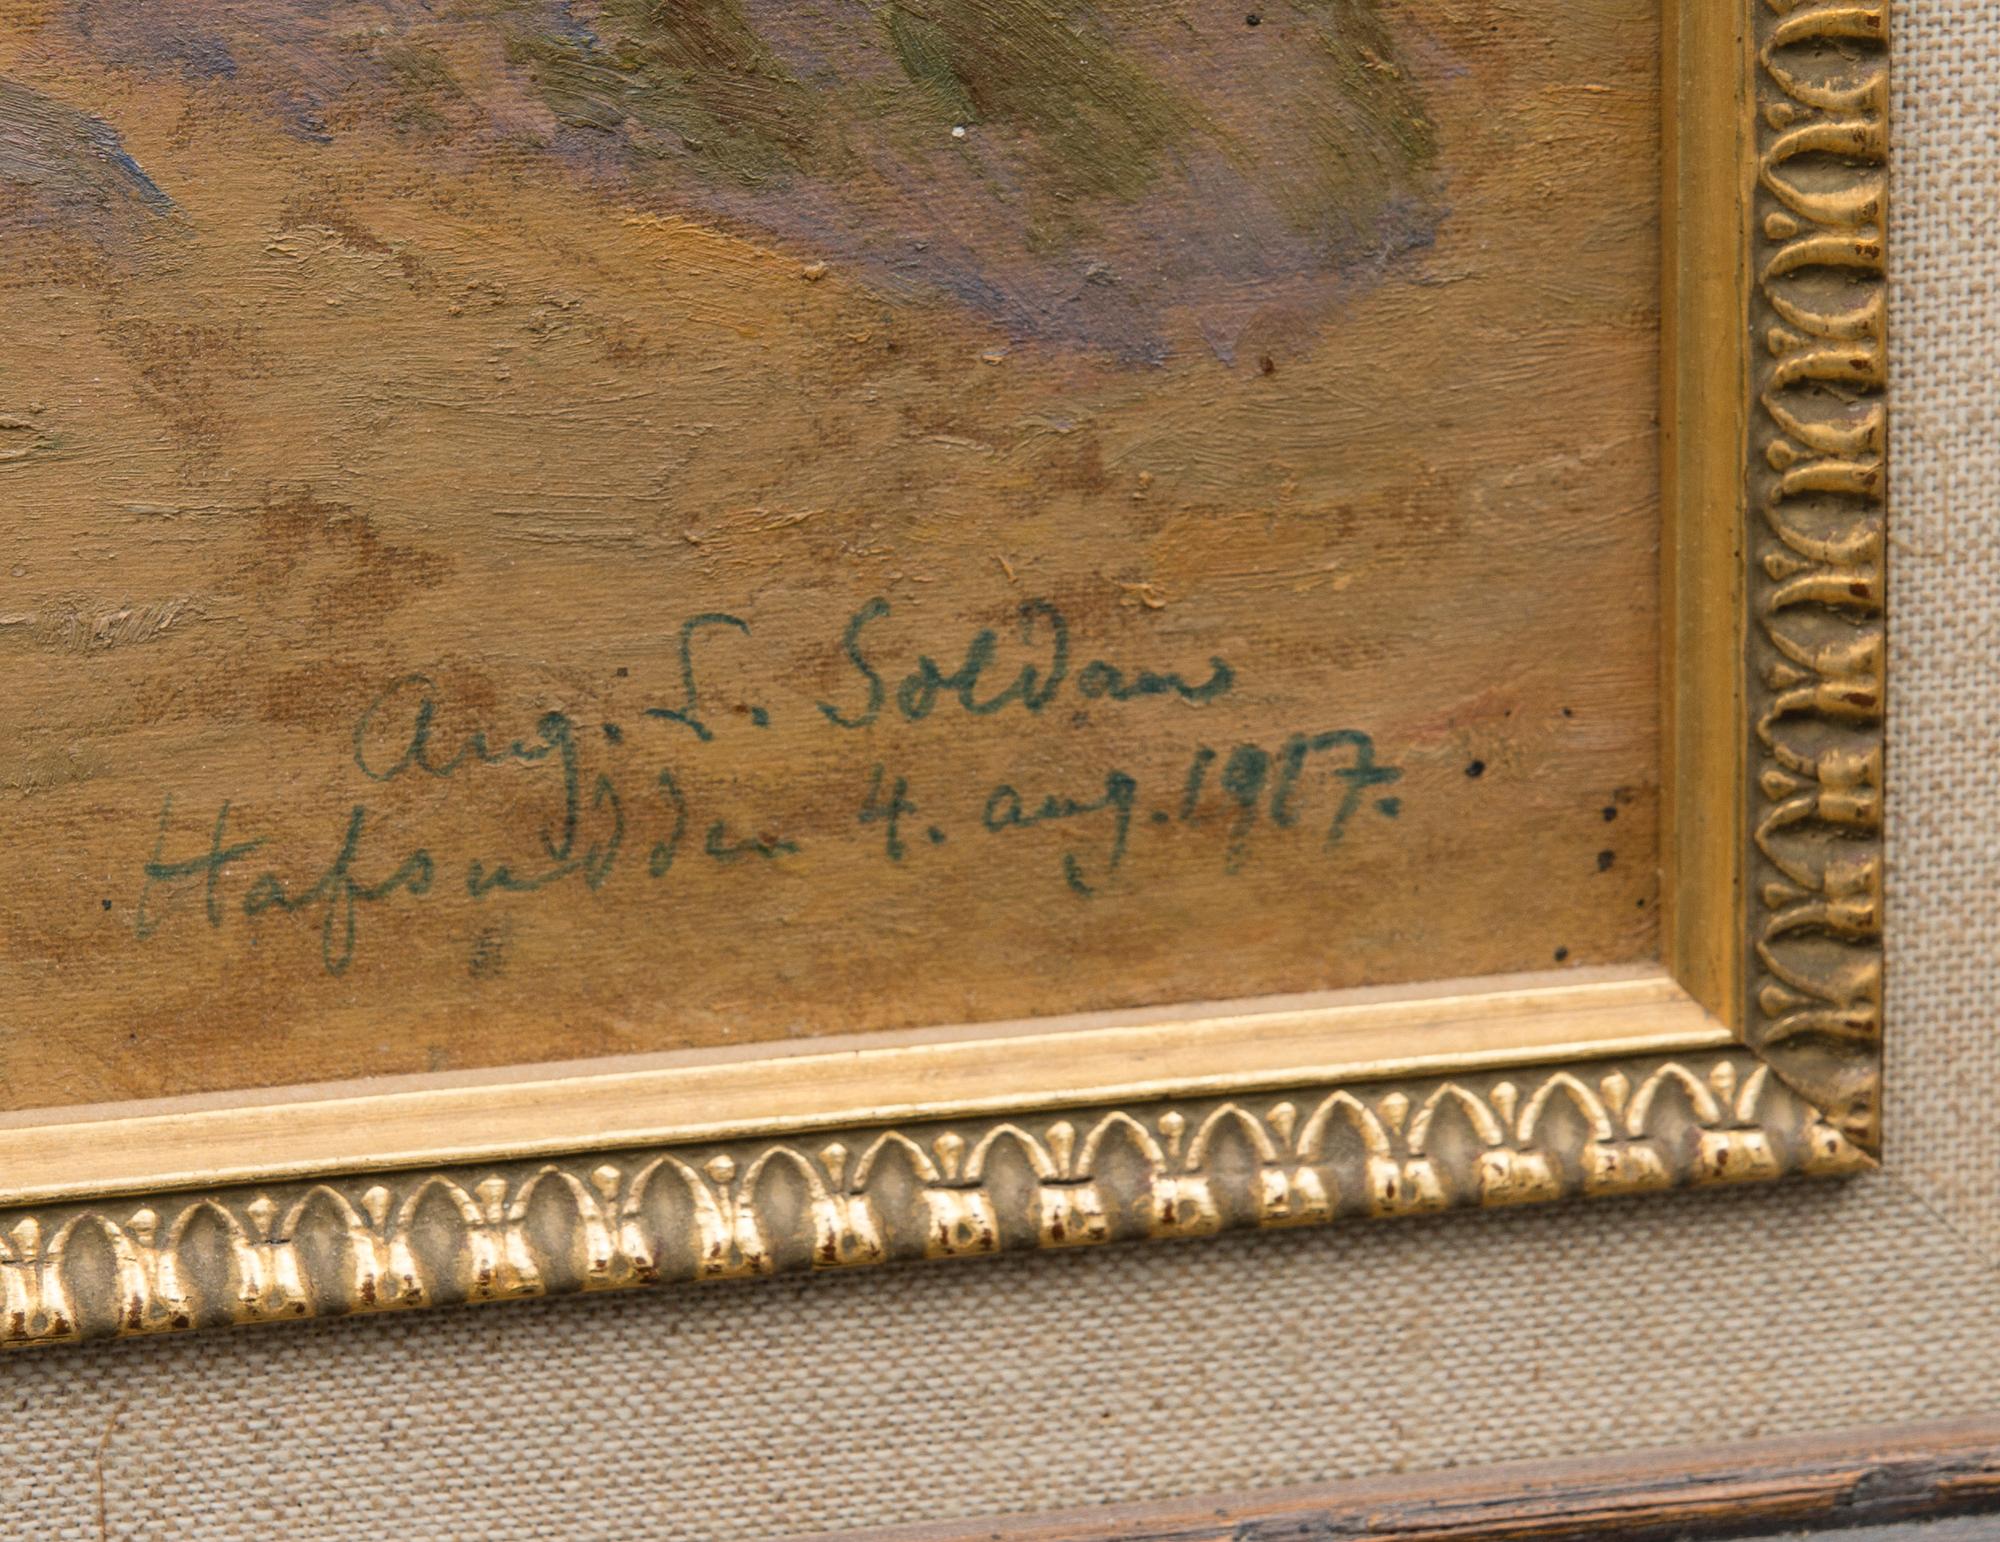 Aug. L. Soldan
Hafsudden 4. aug. 1917.